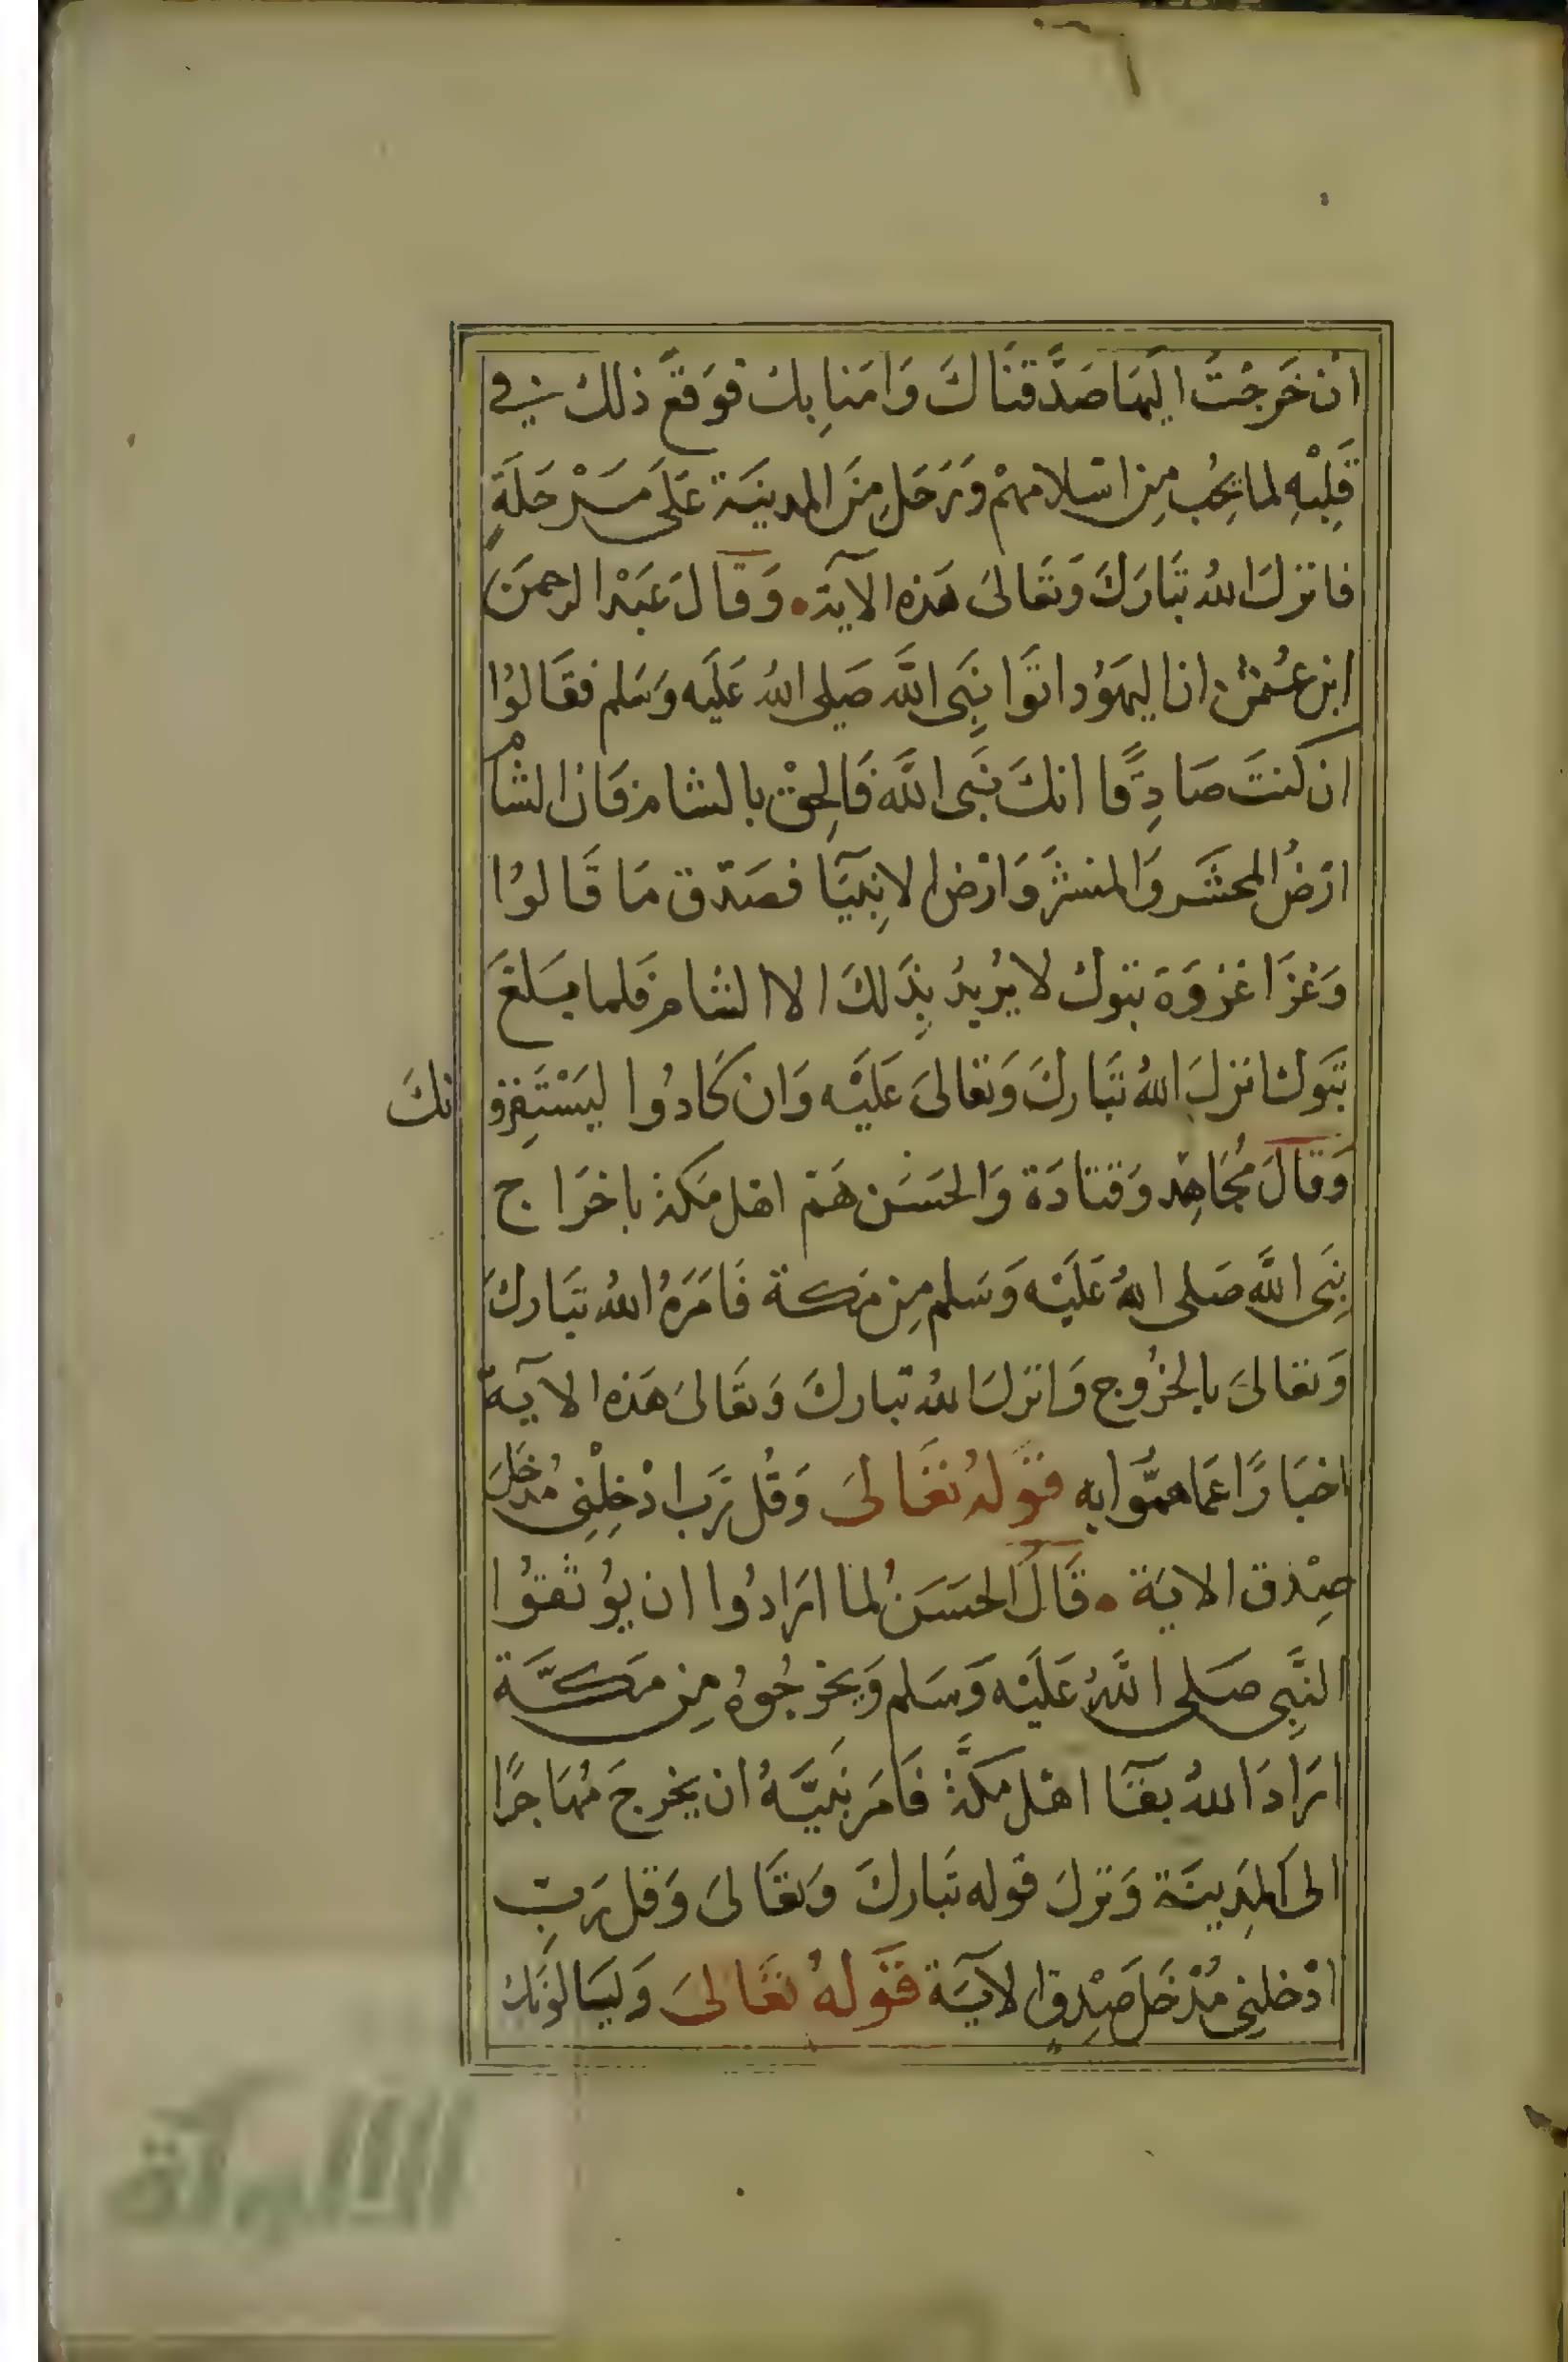 ان خَرجْتَ اليهَا صَدَّقنَاكَ وَامَنا بِكَ فوَقعَ ذلك في
قَلِبْهِ لما يحُب مِن اسْلامهمْ وَرَحَل مِنَ المدينَة عَلَى مَرْحَلَةٍ
فانزلَ اللهُ تبَارَكَ وَتعَالىَ هَذه الآية • وَقالَ عَبْد الرحمنَ
ابن عثمن ان اليهَوُد اتَوا نبَى اللَّه صَلى اللهُ عَليَه وَسَلم فقَالوُا
ان كنتَ صَادِقًا انكَ نَبَى اللَّه فَالحِقْ بالشام فَان الشام
ارْضُ المحشَر وَالمنشَر وَارْض الانِبيَآ فصَدق مَا قَالوُا
وَغزَا غزوَة تبوك لا يرُيدُ بذَلكَ الا الشام فَلما بَلغَ
تَبوك انزلَ اللهُ تبَاركَ وَتعالىَ عَليْه وَان كَادُوا ليَسْتَفِزونكَ
وَقالَ مُجَاهِد وَقتادَة وَالحَسَن هَمّ اهْل مَكة باخرَاج
نِبَى اللَّه صَلى اللهُ عَليَه وَسَلم مِن مَكة فَامَرَهُ اللهُ تبَاركَ
وَتعالىَ بالخرُوج وَانزلَ اللهُ تباركَ وَتعَالىَ هَذه الآية
اخبَارًا عَما همُّوا به قَولهُ تعَالىَ وَقُل رَب ادْخِلْنِى مُدخلَ
صِدْق الاية • قَالَ الحسَنُ لما ارَادُوا ان يوُثقوُا
النَّبِى صَلى اللَّهُ عَليَه وَسَلم وَيخرجُوهُ مِن مَكَّة
ارَادَ اللهُ بقآ اهْل مَكَّة فَامَر نبَيَّهُ ان يخرجَ مُهَاجرًا
الى المدِينَة وَنزلَ قوله تبَاركَ وَتعَالىَ وَقل رَبِ
ادْخلنِى مُدْخَلَ صِدْقٍ الآيَة قَولهُ تعَالىَ وَيسَالونَكَ
الألوكة